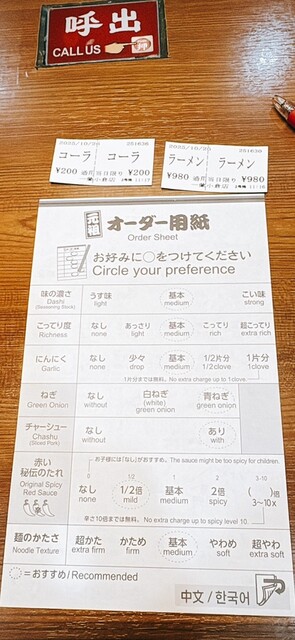 呼出
CALL US
2025/10/20 251638
コーラ コーラ
¥200 ¥200
2025/10/20 251639
ラーメン ラーメン
¥980 ¥980
元祖 オーダー用紙
Order Sheet
お好みに○をつけてください
Circle your preference
味の濃さ うす味 基本 こい味
Dashi light medium strong
(Seasoning Stock)
こってり度 なし あっさり 基本 こってり 超こってり
Richness none light medium rich extra rich
にんにく なし 少々 基本 1/2片分 1片分
Garlic none drop medium 1/2clove 1 clove
1片分までは無料。No extra charge up to 1clove.
ねぎ なし 白ねぎ 青ねぎ
Green Onion without (white) green onion
green onion
チャーシュー なし あり
Chashu without with
(Sliced Pork)
お子様には「なし」がおすすめ。The sauce might be too spicy for children.
赤い 0 1/2 1 2 3-10
秘伝のたれ なし 1/2倍 基本 2倍 ( )倍
Original Spicy none mild medium spicy 3〜10x
Red Sauce
辛さ10倍までは無料。No extra charge up to spicy level 10.
麺のかたさ 超かた かため 基本 やわめ 超やわ
Noodle Texture extra firm firm medium soft extra soft
=おすすめ/Recommended
中文/한국어